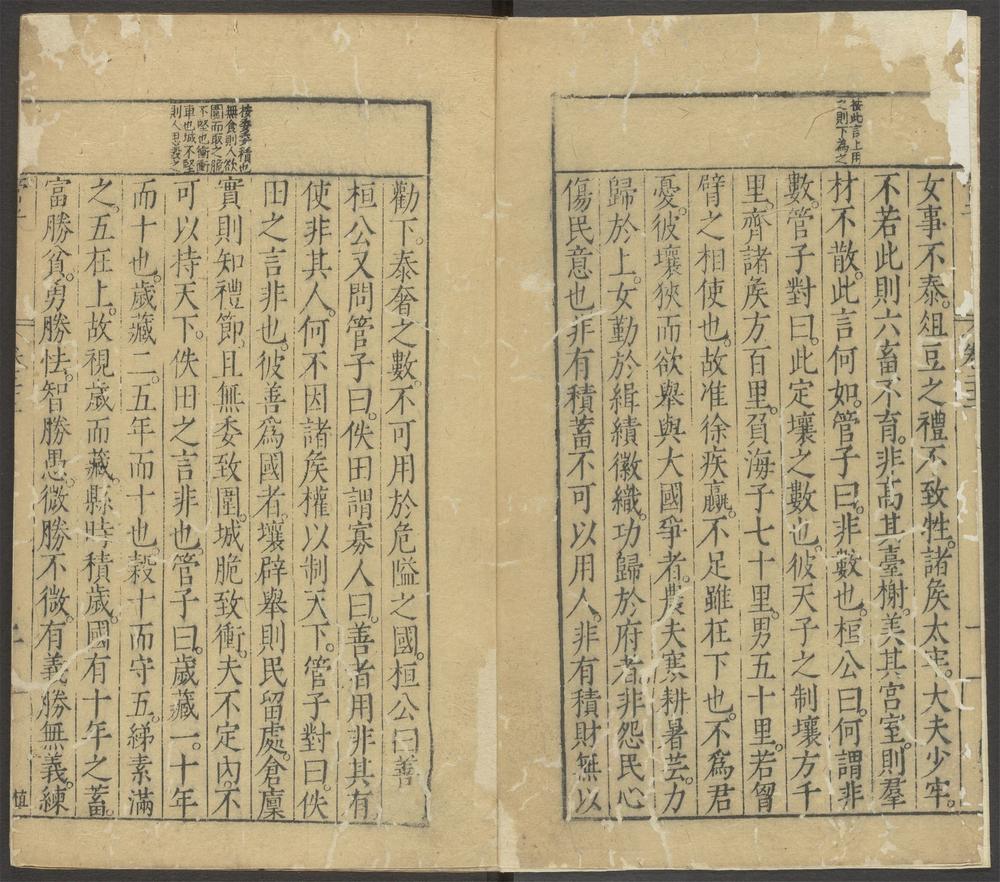 按此言上用
之則下為之
女事不泰。俎豆之禮不致牲。諸矦太牢。大夫少牢。
不若此則六畜不育。非高其臺榭。美其宮室。則羣
材不散。此言何如。管子曰。非數也。桓公曰。何謂非
數。管子對曰。此定壤之數也。彼天子之制壤方千
里。齊諸矦方百里。負海子七十里。男五十里。若胷
臂之相使也。故准徐疾羸。不足雖在下也。不為君
憂。彼壤狹而欲舉與大國爭者。農夫寒耕暑芸。力
歸於上。女勤於緝績徽織。功歸於府者。非怨民心
傷民意也。非有積蓄不可以用人。非有積財無以
勸下。泰奢之數。不可用於危隘之國。桓公曰善
桓公又問管子曰。佚田謂寡人曰。善者用非其有
使非其人。何不因諸矦權以制天下。管子對曰。佚
田之言非也。彼善爲國者。壤辟舉則民留處。倉廩
實則知禮節。且無委致圍。城脆致衝。夫不定內。不
可以持天下。佚田之言非也。管子曰。歲藏一。十年
而十也。歲藏二。五年而十也。穀十而守五。綈素滿
之。五在上。故視歲而藏。縣時積歲。國有十年之蓄。
富勝貧。勇勝怯。智勝愚。微勝不微。有義勝無義。練
按委積也
無食則人欲
圍而取之脆
不堅也衝衝
車也城不堅
則人思毀之